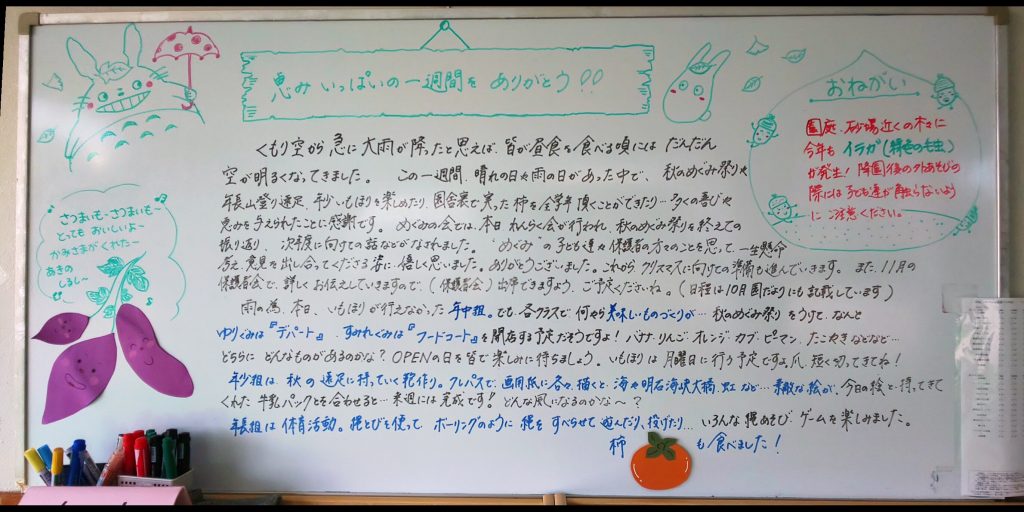 恵み いっぱいの一週間を ありがとう!!
くもり空から 急に 大雨が 降ったと思えば、皆が昼食を食べる頃には だんだん
空が明るくなってきました。 この一週間、晴れの日々雨の日があった中で、秋のめぐみ祭りや
年長山登り遠足、芋ほりを楽しめたり、園舎裏で実った柿を全学年頂くことができたり…多くの喜びや
恵みを与えられたことに感謝です。 めぐみの会では、本日 れんらく会が行われ、秋のめぐみ祭りを終えての
振り返り、次年度に向けての話などがなされました。 "めぐみ"の子ども達や保護者の方々のことを思って、一生懸命
考え、意見を出し合ってくださる姿に嬉しく思いました。ありがとうございました。これから クリスマスに向けての準備も進んでいきます。また、11月の
保護者会で、詳しくお伝えしていきますので、(保護者会)出席できますよう、ご予定くださいね。(日程は10月園だよりにも記載しています)
雨の為、本日、いもほりが行えなかった 年中組。でも、各クラスで 何やら美味しいものづくりが… 秋のめぐみ祭りをうけて、なんと
ゆりぐみは『デパート』、すみれぐみは『フードコート』を開店する予定だそうですよ! バナナ・りんご・オレンジ・カブ・ピーマン、たこやきなどなど…
どちらに どんなものがあるのかな? OPENの日を皆で楽しみに待ちましょう。いもほりは 月曜日に行う予定ですよ。爪、短く切ってきてね!
年少組は、秋の遠足に持っていく鞄作り。クレパスで、画用紙に各々描くと…海や明石海峡大橋、虹など…素敵な絵が、今日の絵と、持ってきて
くれた 牛乳パックとを合わせると…来週には完成です! どんな風になるのかな〜?
年長組は 体育活動。縄とびを使って、ボーリングのように 縄を すべらせて 遊んだり、投げたり… いろんな縄あそび・ゲームを楽しみました。
柿 も食べました!
おねがい
園庭、砂場近くの木々に
今年も イラガ(緑色の毛虫)
が発生! 降園後の外あそびの
際には子ども達が触らないよう
に ご注意ください。
さつまいも〜さつまいも〜
とっても おいしいよ〜
かみさまが くれた〜
あきの
しるし〜